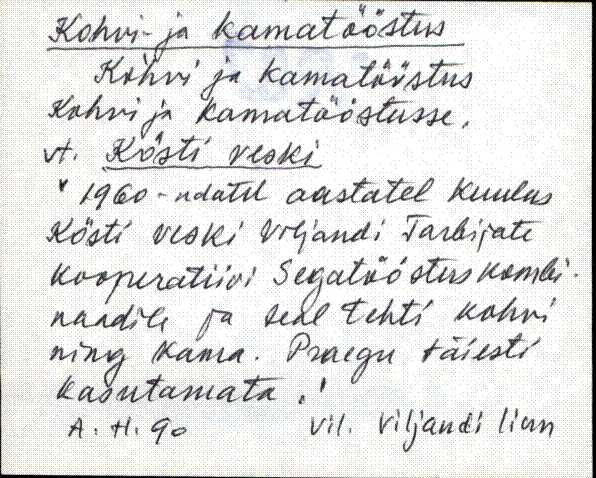 Kohvi- ja kamatööstus
Kohvi ja kamatööstus
Kohvi ja kamatöóstusse.
vt. Kösti veski
" 1960-ndatel aastatel kuulus
Kösti veski Viljandi Tarbijate
kooperatiivi Segatööstuskombi-
naadile ja seal tehti kohvi
ning kama. Praegu täiesti
kasutamata."
A. H. 90 Vil. Viljandi linn